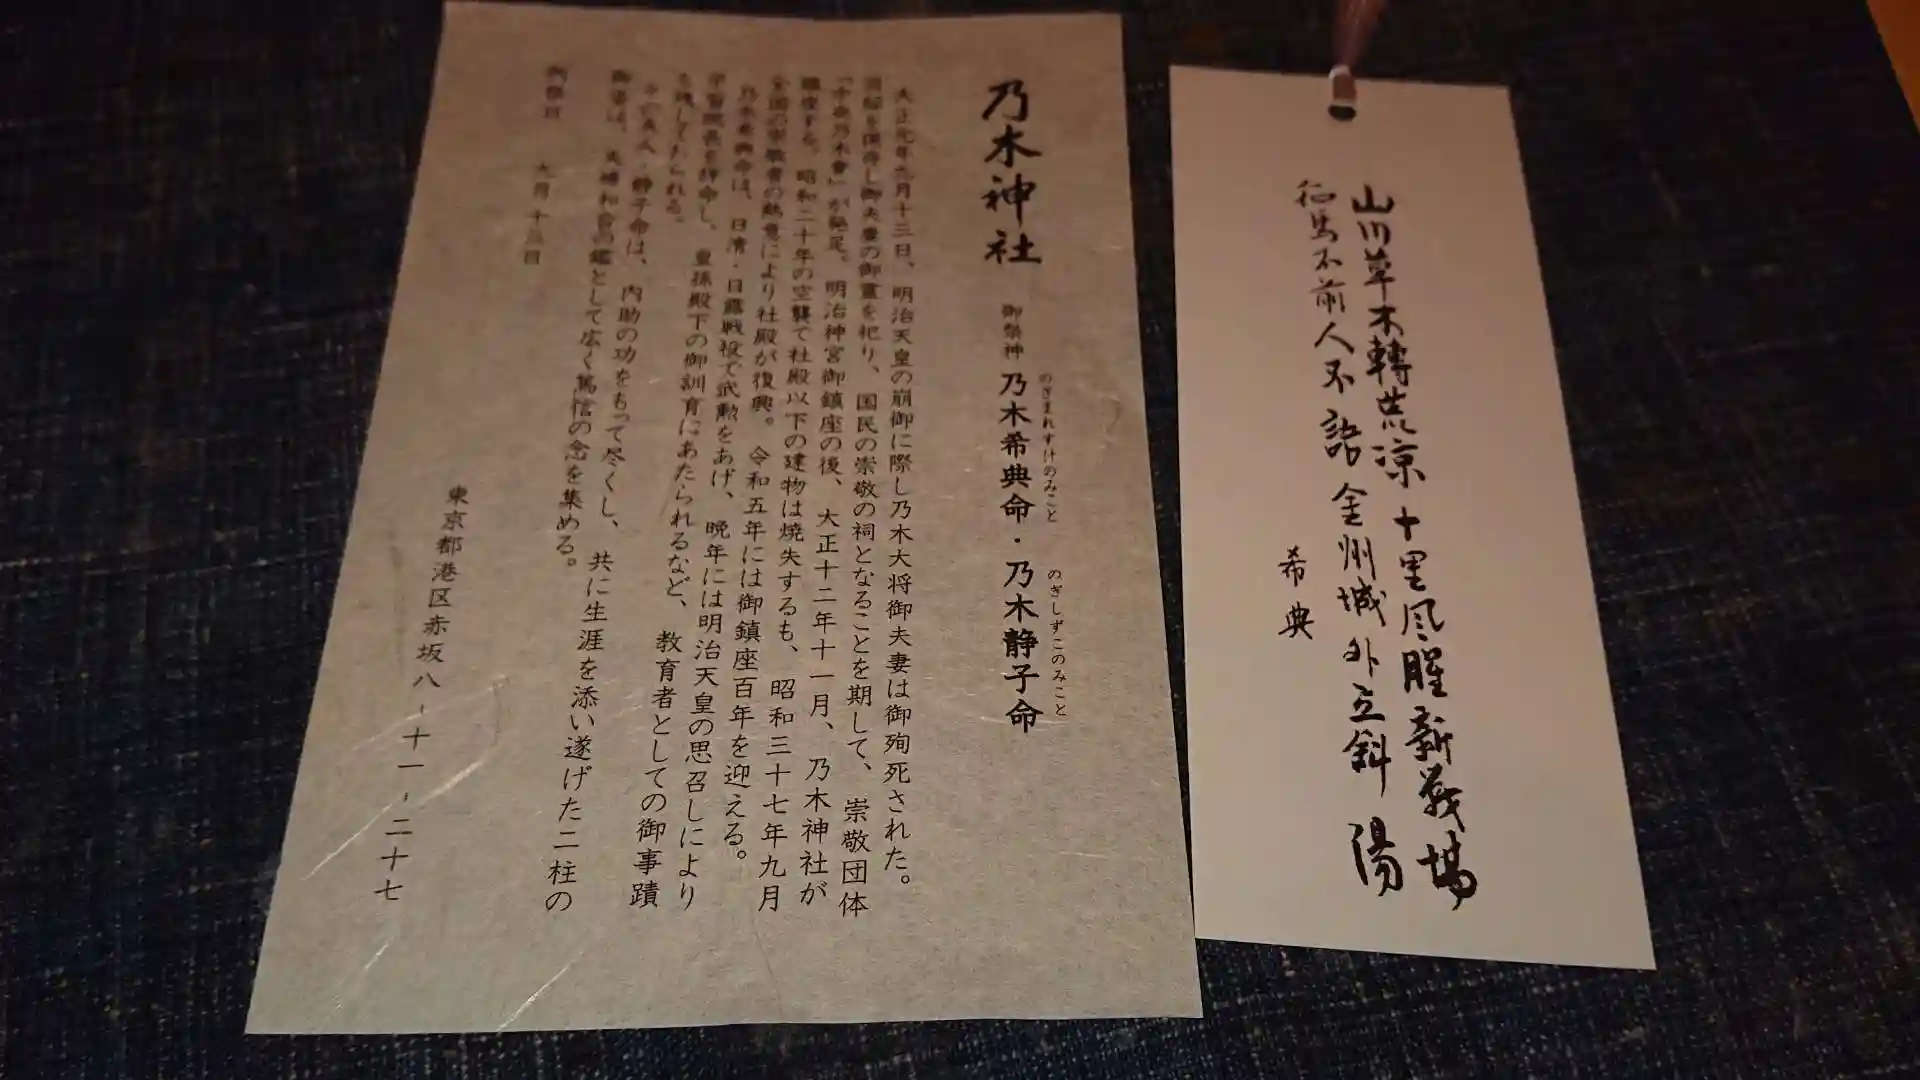 山川草木轉荒凉 十里風腥新戰場
征馬不前人不語 金州城外立斜陽
希典
乃木神社 御祭神 乃木希典命・乃木静子命
のぎまれすけのみこと のぎしずこのみこと
大正元年九月十三日、明治天皇の崩御に際し乃木大将御夫妻は御殉死された。
御夫妻の御靈を祀り、国民の崇敬の祠となることを期して、崇敬団体
「中央乃木會」が発足。明治神宮御鎮座の後、大正十二年十一月、乃木神社が
鎮座する。昭和二十年の空襲で社殿以下の建物は焼失するも、昭和三十七年九月
全国の崇敬者の熱意により社殿が復興。令和五年には御鎮座百年を迎える。
乃木希典命は、日清・日露戦役で武勲をあげ、晩年には明治天皇の思召しにより
学習院長を拝命し、皇孫殿下の御訓育にあたられるなど、教育者としての御事蹟
も残しておられる。
令夫人・静子命は、内助の功をもって尽くし、共に生涯を添い遂げた二柱の
御姿は、夫婦和合の鑑として広く篤信の念を集める。
例祭日 九月十三日
東京都港区赤坂八-十一-二十七